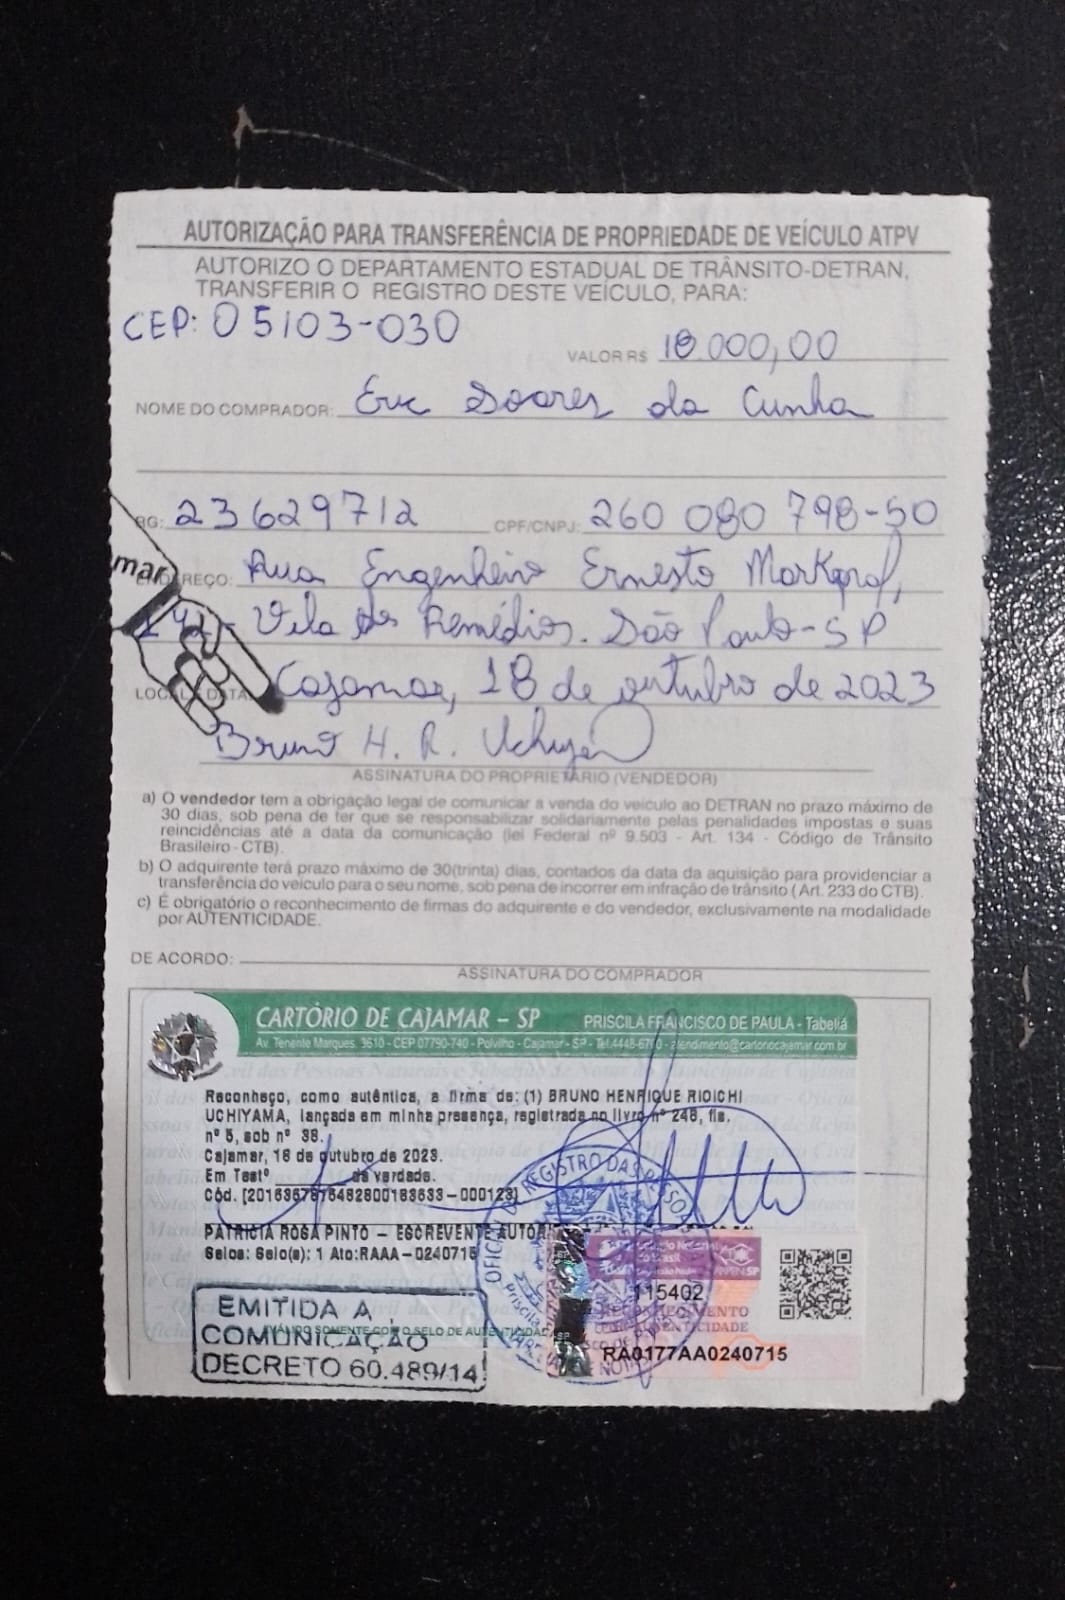 AUTORIZAÇÃO PARA TRANSFERÊNCIA DE PROPRIEDADE DE VEÍCULO ATPV
AUTORIZO O DEPARTAMENTO ESTADUAL DE TRÂNSITO-DETRAN,
TRANSFERIR O REGISTRO DESTE VEÍCULO, PARA:
CEP: 05103-030
VALOR R$ 18.000,00
NOME DO COMPRADOR: Eric Soares da Cunha
RG: 23629712 CPF/CNPJ: 260 080 798-50
mar
ENDEREÇO: Rua Engenheiro Ernesto
Vila dos Remédios. São Paulo-SP
LOCAL E DATA: Cajamar, 18 de outubro de 2023
Bruno H. R. Uchiyama
ASSINATURA DO PROPRIETÁRIO (VENDEDOR)
a) O vendedor tem a obrigação legal de comunicar a venda do veículo ao DETRAN no prazo máximo de
30 dias, sob pena de ter que se responsabilizar solidariamente pelas penalidades impostas e suas
reincidências até a data da comunicação (lei Federal nº 9.503 - Art. 134 - Código de Trânsito
Brasileiro - CTB).
b) O adquirente terá prazo máximo de 30(trinta) dias, contados da data da aquisição para providenciar a
transferência do veículo para o seu nome, sob pena de incorrer em infração de trânsito (Art. 233 do CTB).
c) É obrigatório o reconhecimento de firmas do adquirente e do vendedor, exclusivamente na modalidade
por AUTENTICIDADE.
DE ACORDO:
ASSINATURA DO COMPRADOR
CARTÓRIO DE CAJAMAR – SP PRISCILA FRANCISCO DE PAULA - Tabeliã
Av. Tenente Marques, 3610 - CEP 07790-740 - Polvilho - Cajamar - SP - Tel.4448-6700 - atendimento@cartoriocajamar.com.br
Reconheço, como autêntica, a firma de: (1) BRUNO HENRIQUE RIOICHI
UCHIYAMA, lançada em minha presença, registrada no livro nº 246, fls.
nº 5, sob nº 38.
Cajamar, 18 de outubro de 2023.
Em Testº da verdade.
Cód.
PATRICIA ROSA PINTO – ESCREVENTE
Selos: Selo(s): 1 Ato:RAAA-0240715
OFICIAL DE REGISTRO DAS PESSOAS
115402
RECONHECIMENTO
AUTENTICIDADE
RA0177AA0240715
VÁLIDO SOMENTE COM O SELO DE AUTENTICIDADE
EMITIDA A
COMUNICAÇÃO
DECRETO 60.489/14